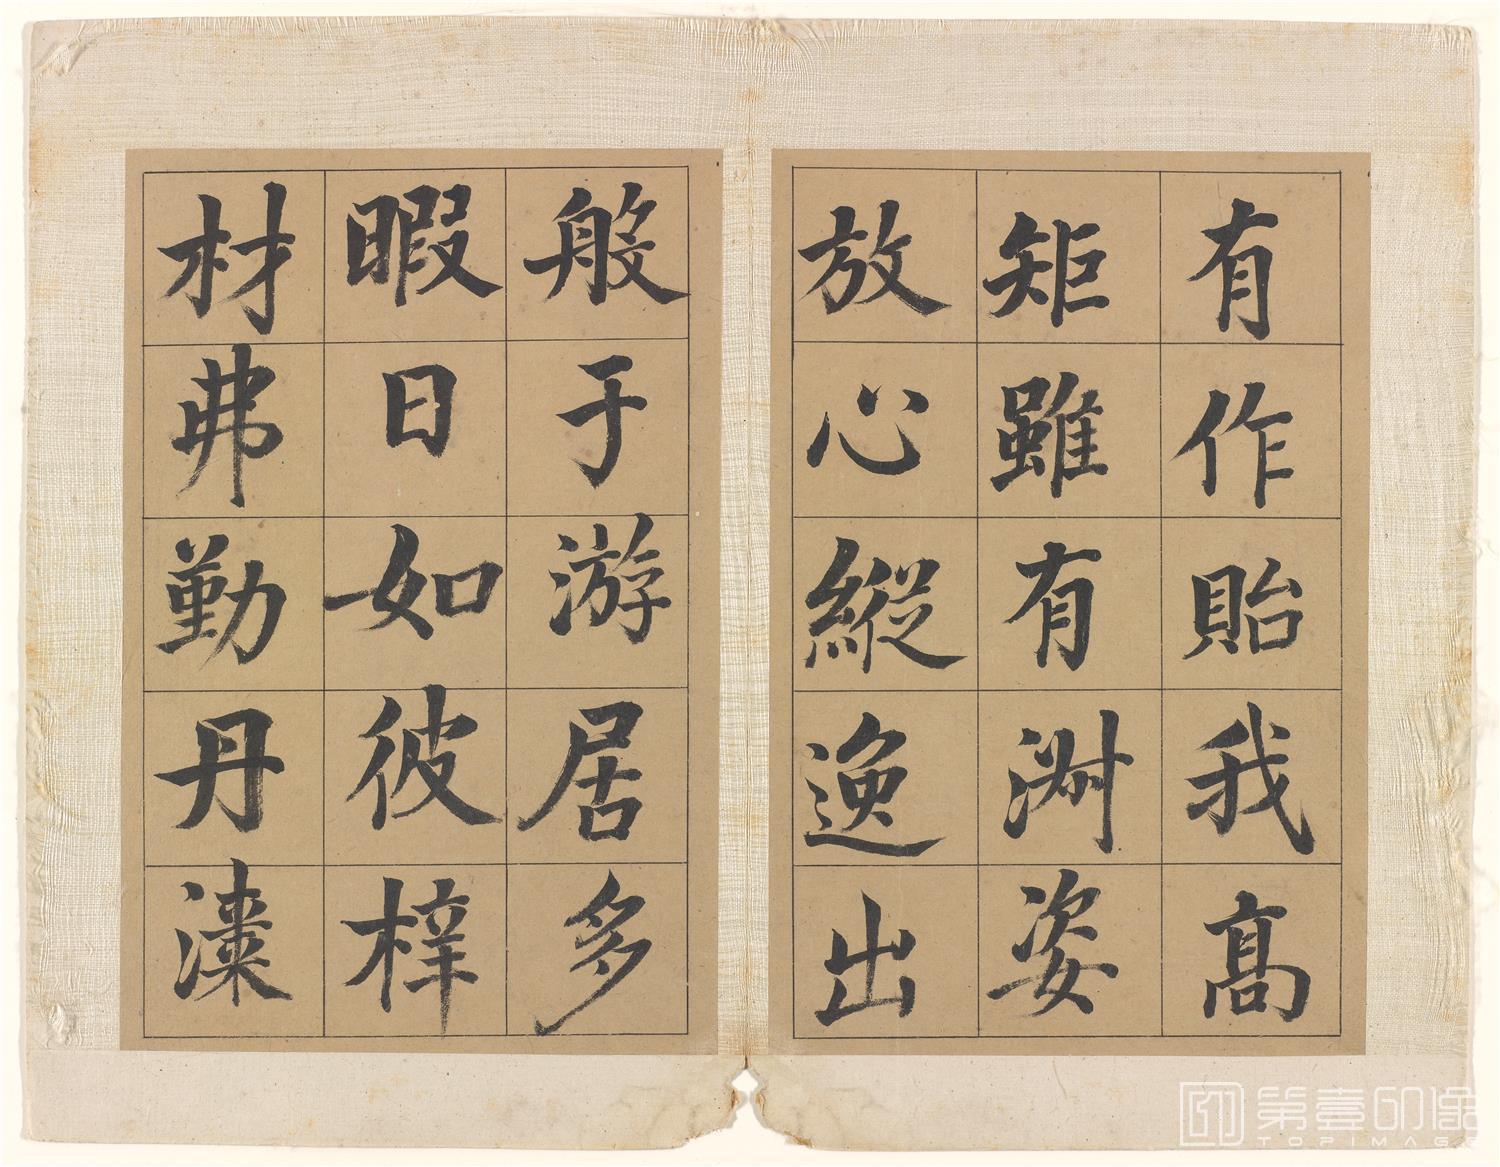 有作貽我高
矩雖有淵姿
放心縱逸出
般于游居多
暇日如彼梓
材弗勤丹漆
第壹印像
TOPIMAGE